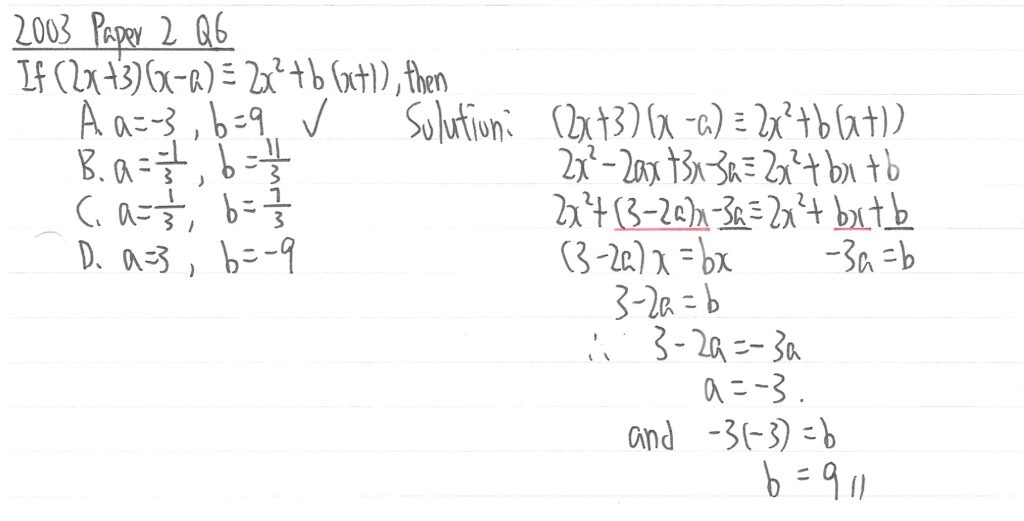 2003 Paper 2 Q6
If (2x+3)(x-a) ≡ 2x²+b(x+1), then
A. a=-3, b=9 ✓
B. a=-1/3, b=11/3
C. a=1/3, b=7/3
D. a=3, b=-9
Solution: (2x+3)(x-a) ≡ 2x²+b(x+1)
2x²-2ax+3x-3a ≡ 2x²+bx+b
2x²+(3-2a)x-3a ≡ 2x²+bx+b
(3-2a)x=bx -3a=b
3-2a=b
∴ 3-2a=-3a
a=-3.
and -3(-3)=b
b=9//